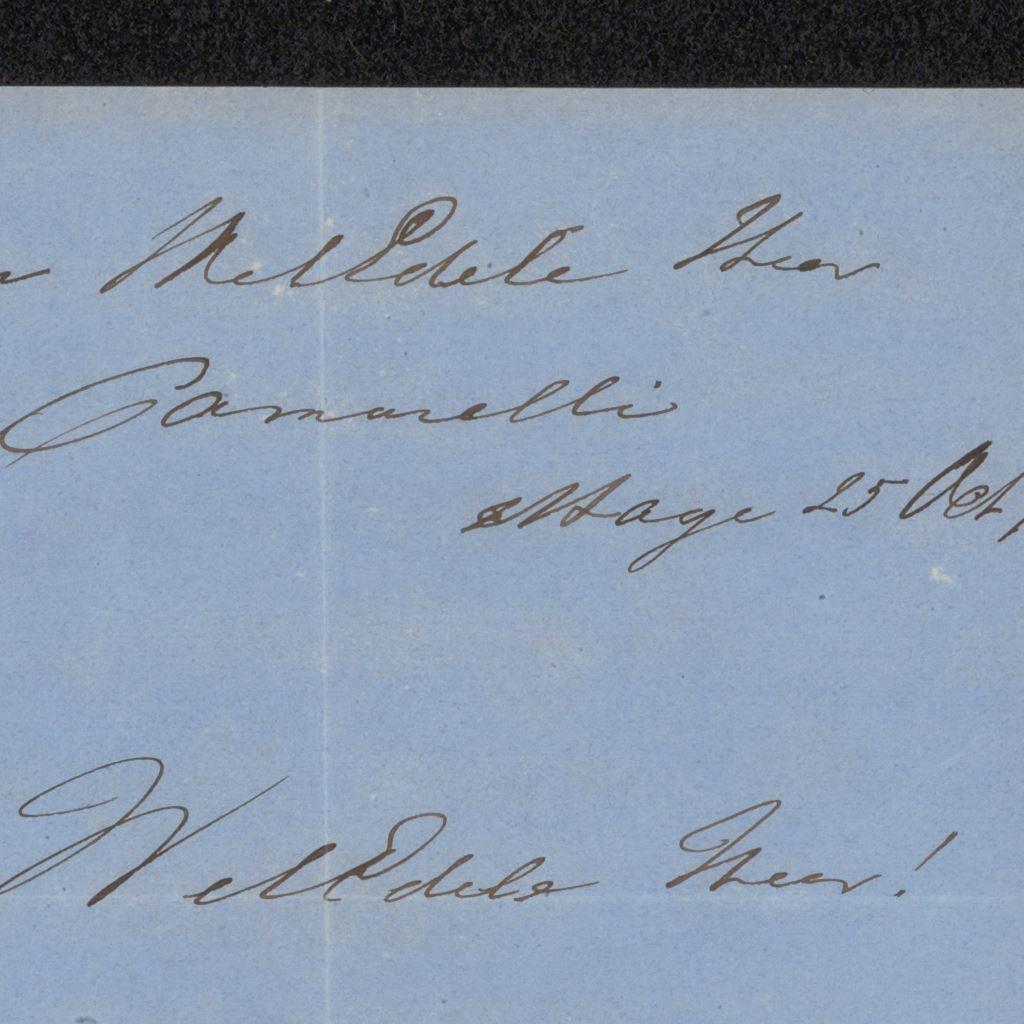 WelEdele Heer
Camarelli
sHage 25 Oct
WelEdele Heer!